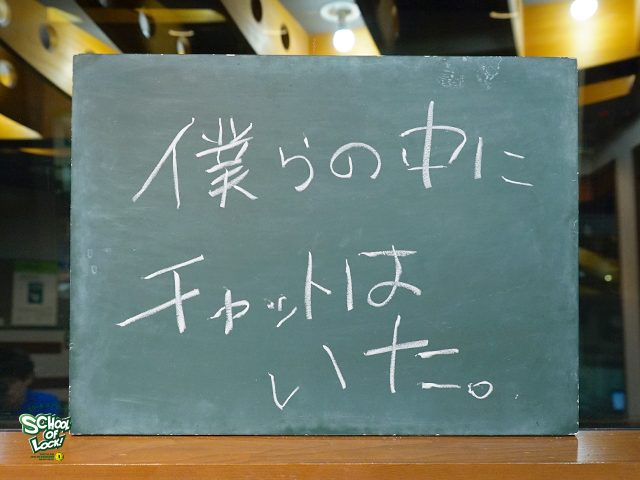 僕らの中に
チャットは
いた。
SCHOOL
OF
LOCK!